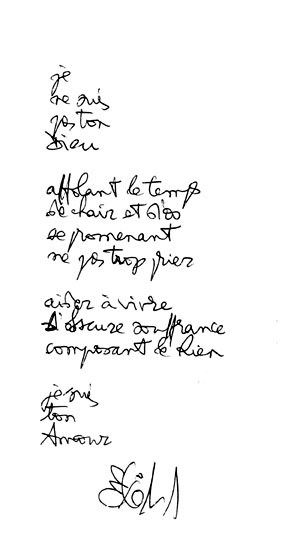 je
ne suis
pas ton
Dieu
affolant le temps
de chair et d'os
se promenant
ne pas trop prier
aider à vivre
d'obscure souffrance
composant le Rien
je suis
ton
Amour